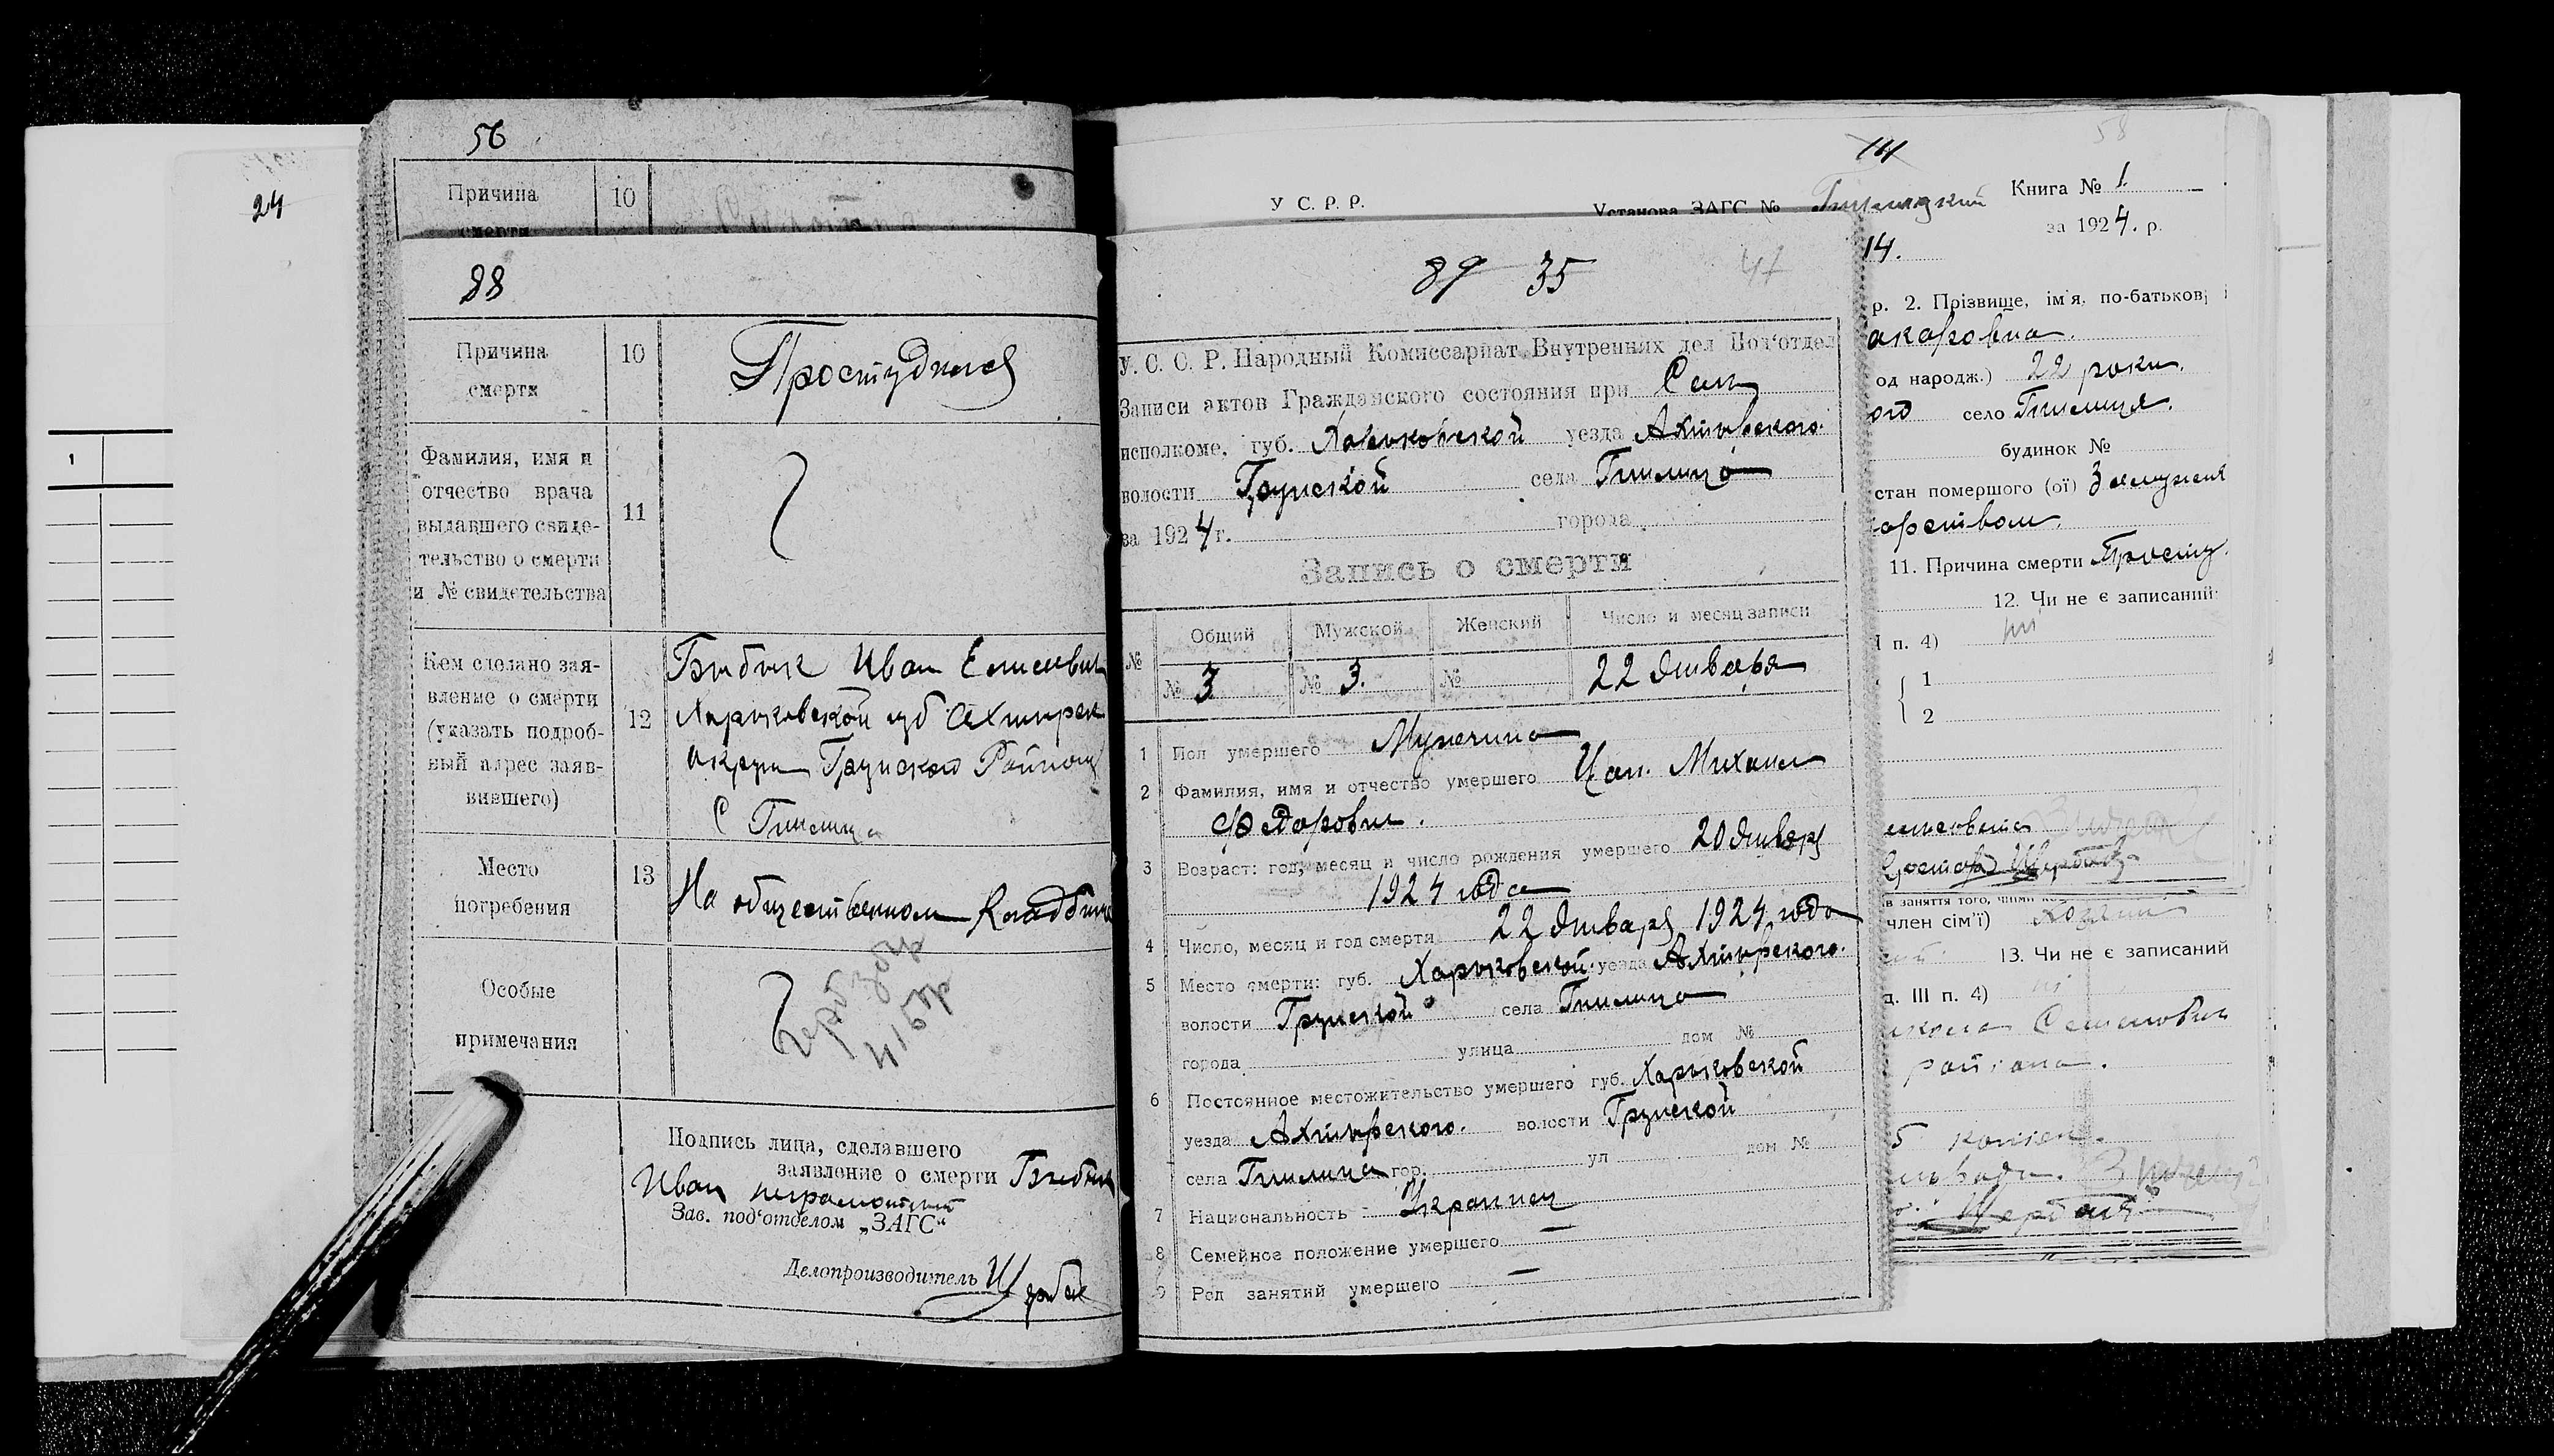 24
1
56
Причина 10
смерти
88
Причина
смерти
10
Простудился
Фамилия, имя и
отчество врача
выдавшего свиде-
тельство о смерти
и № свидетельства
11
Кем сделано зая-
вление о смерти
(указать подроб-
ный адрес заяв-
вившего)
12
Бибик Иван
Харьковской губ Ахтирск
округи Грунского Району
С Гнилица
Место
погребения
13
На общественном кладбище
Особые
примечания
Подпись лица, сделавшего
заявление о смерти Бибик
Иван неграмотный
Зав. под'отделом „ЗАГС“
Делопроизводитель
У С. Р. Р.
Установа ЗАГС №
Книга № 1.
за 1924. р.
58
89 35 47
У. С. С. Р. Народный Комиссариат Внутренних дел Под'отдел
Записи актов Гражданского состояния при Сель
исполкоме, губ. Харьковской уезда Ахтырского.
волости Грунской села Гнилица
за 1924 г. города
Запись о смерти
№ Общий Мужской Женский Число и месяц записи
№ 3 № 3. № 22 Января
1 Пол умершего Мужчина
2 Фамилия, имя и отчество умершего Цап. Михаил
Федорович.
3 Возраст: год, месяц и число рождения умершего 20 Января
1924 года
4 Число, месяц и год смерти 22 Января 1924 года
5 Место смерти: губ. Харьковской уезда Ахтырского.
волости Грунской села Гнилица
города улица дом №
6 Постоянное местожительство умершего губ. Харьковской
уезда Ахтырского. волости Грунской
села Гнилица гор. ул дом №
7 Национальность - Украинец
8 Семейное положение умершего —
9 Род занятий умершего —
14.
р. 2. Прізвище, ім'я, по-батькові
акаровна.
од народж.) 22 роки.
ого село Гнилиця.
будинок №
стан помершого (ої) Замужня
арством.
11. Причина смерти Просту
12. Чи не є записаний:
І п. 4) ні
1
2
в заняття того,
член сім'ї)
13. Чи не є записаний
д. ІІІ п. 4) ні
Семенович
района.
5 копієк.